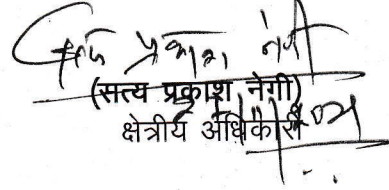 सत्य प्रकाश नेगी
(सत्य प्रकाश नेगी)
क्षेत्रीय अधिकारी